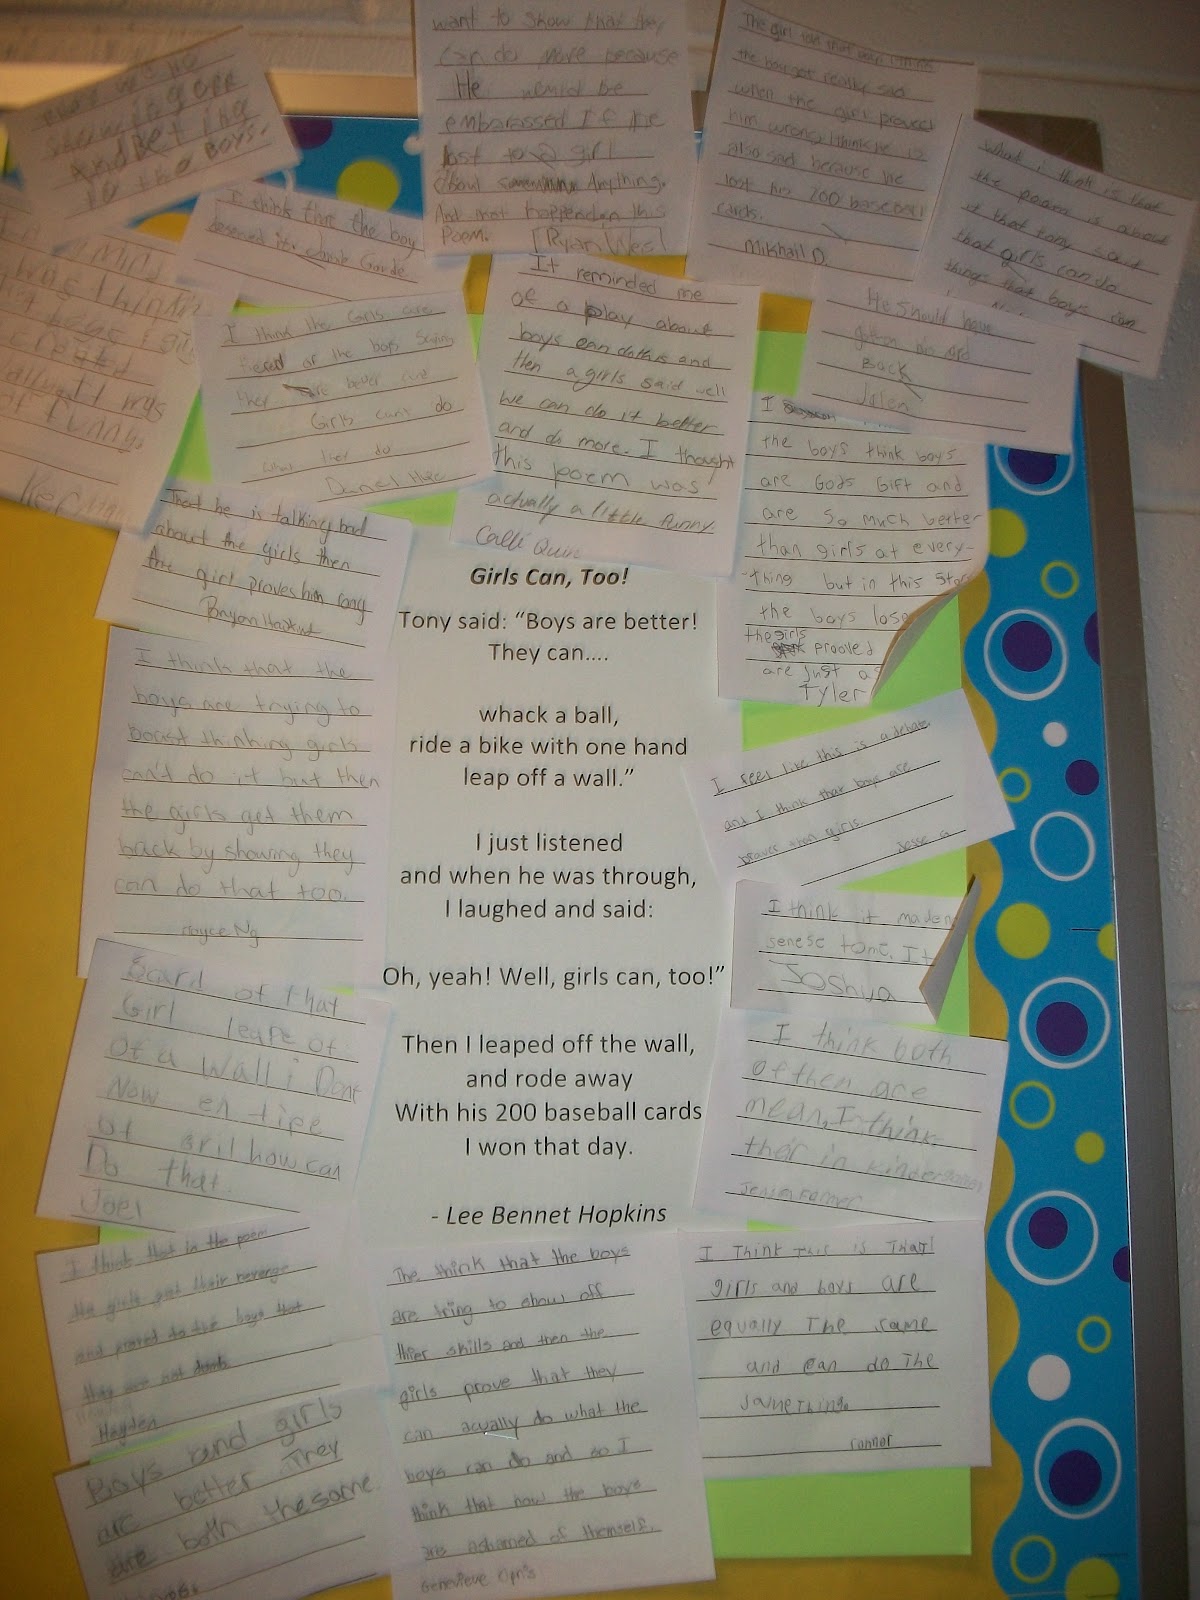 And Bet ing
To the BOYS.
I think that the boy
deserved it.
want to show that they
can do more because
He would be
embarassed If he
lost to a girl
about Anything.
And that happended in this
Poem. Ryan Wes
the boy got really sad
when the girl proved
him wrong I think he is
also sad because he
lost his 200 baseball
cards.
Mikhail D.
What i think is that
the poem is about
that girls can do
things that boys can
He should have
gotten his
Back
Jalen
I think the Girls are
of the boys Saying
they are better and
Girls cant do
what they do
Daniel
It reminded me
of a play about
boys can do this and
then a girls said well
we can do it better
and do more. I thought
this poem was
actually a little funny.
Calli Quin
I
the boys think boys
are Gods Gift and
are so much better
than girls at every-
thing but in this
the boys lose
the girls
prooled
are just as
Tyler
was
funny.
That he is talking bad
about the girls then
the girl proves him rong
Girls Can, Too!
Tony said: “Boys are better!
They can....
whack a ball,
ride a bike with one hand
leap off a wall.”
I just listened
and when he was through,
I laughed and said:
Oh, yeah! Well, girls can, too!”
Then I leaped off the wall,
and rode away
With his 200 baseball cards
I won that day.
- Lee Bennet Hopkins
I think that the
boys are trying to
boast thinking girls
can't do it but then
the girls get them
back by showing they
can do that too.
Joyce Ng
I feel like this is a debate.
and I think that boys are
braver than girls
Jesse a
I think it maden
senese tome. It
Joshua
I think both
of then are
mean, I think
ther in
Scard of that
Girl leape of
of a wall i Dont
Now en tipe
of gril how can
Do that.
Joel
I think that in the poem
the girls get their revenge
and proved to the boys that
they are not dumb
Hayden
Boys and girls
are better They
are both thesame
The think that the boys
are tring to show off
thier skills and then the
girls prove that they
can acually do what the
boys can do and so I
think that now the boys
are ashamed of themself.
Genevieve
I Think This is That
girls and boys are
equally The same
and can do The
same Things
connor